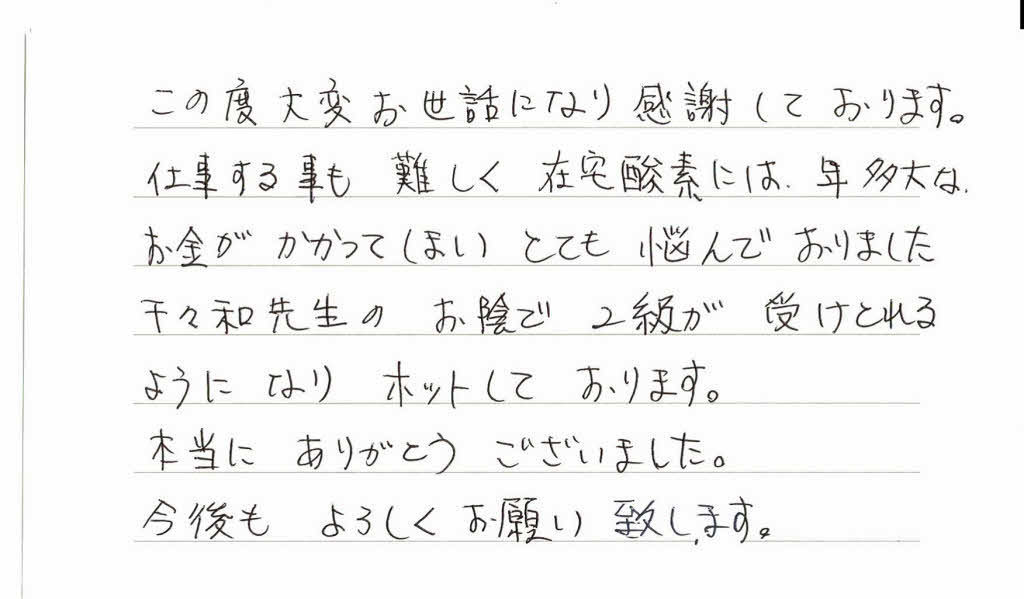 この度大変お世話になり感謝しております。
仕事する事も 難しく 在宅酸素には、年多大な、
お金が かかってしまい とても 悩んで おりました
千々和先生の お陰で 2級が 受けとれる
ように なり ホットして おります。
本当に ありがとう ございました。
今後も よろしく お願い 致します。